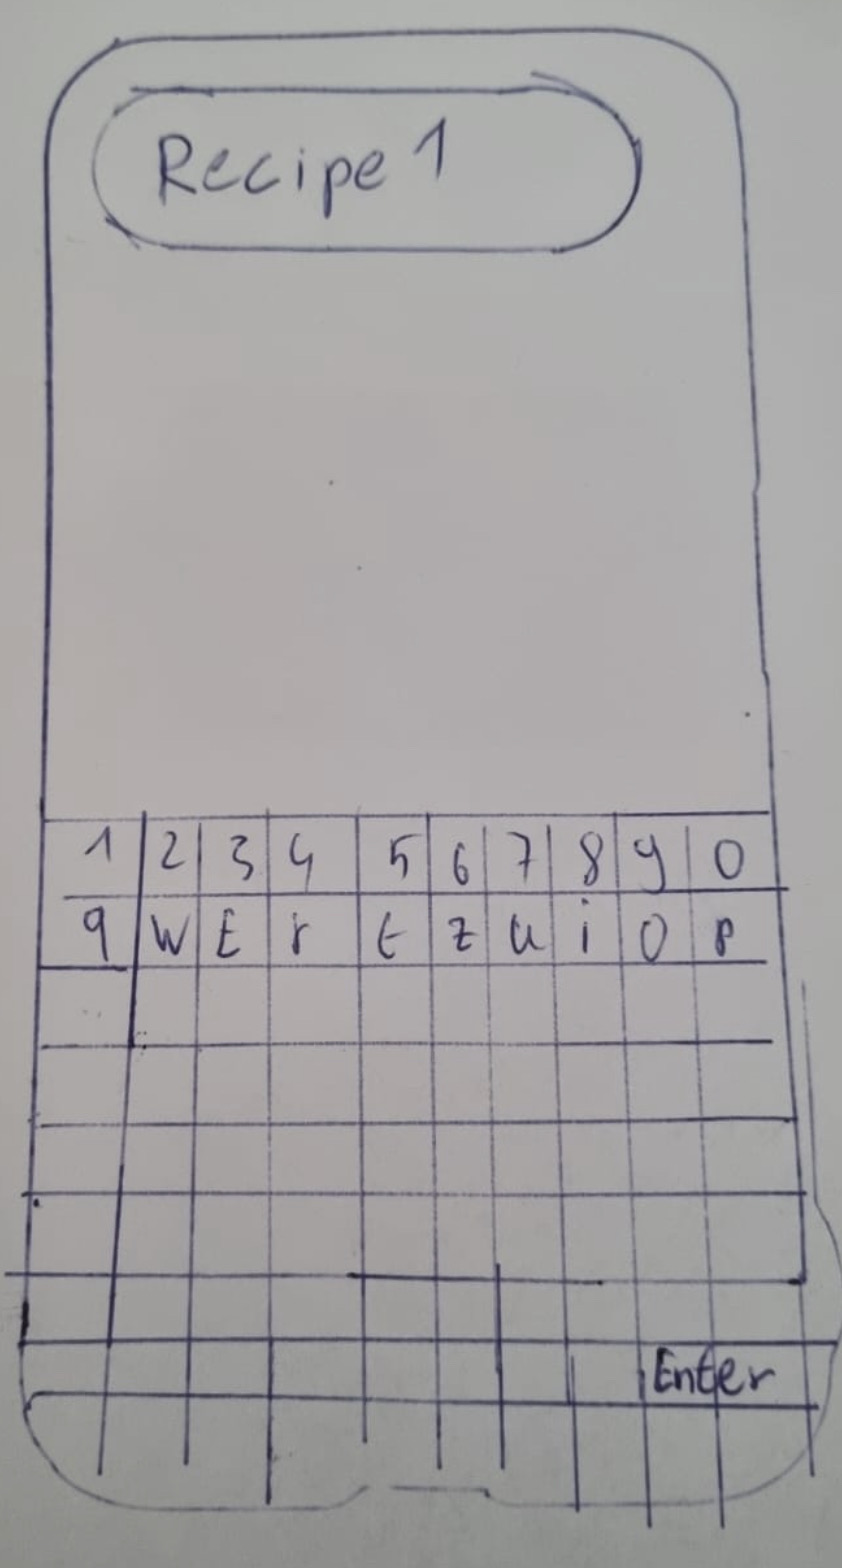 Recipe 1
1 2 3 4 5 6 7 8 9 0
q W E r t z u i O p
Enter